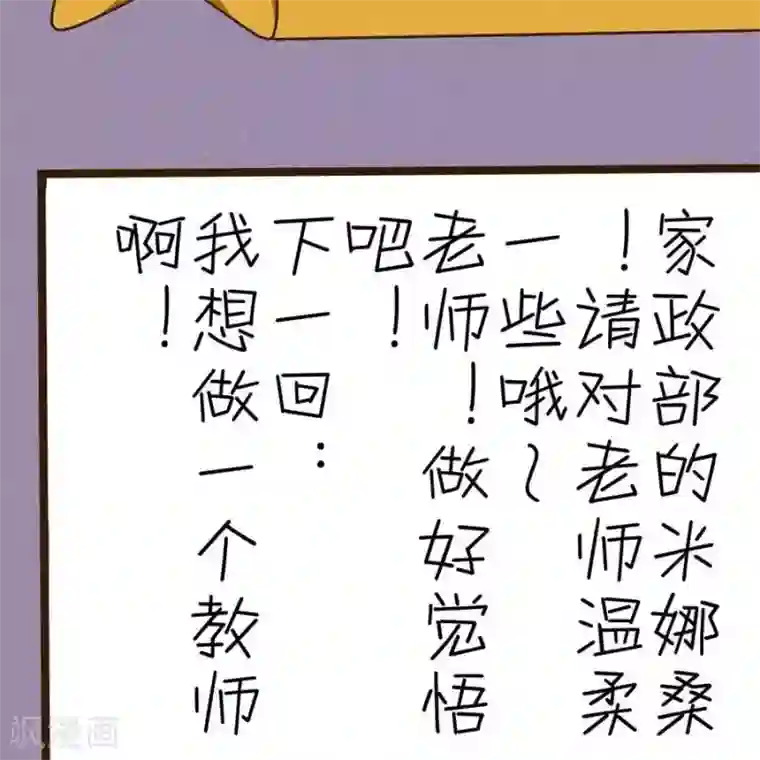 家政部的米娜桑
！请对老师温柔
一些哦～
老师！做好觉悟
吧！
下一回：
我想做一个教师
啊！
飒漫画